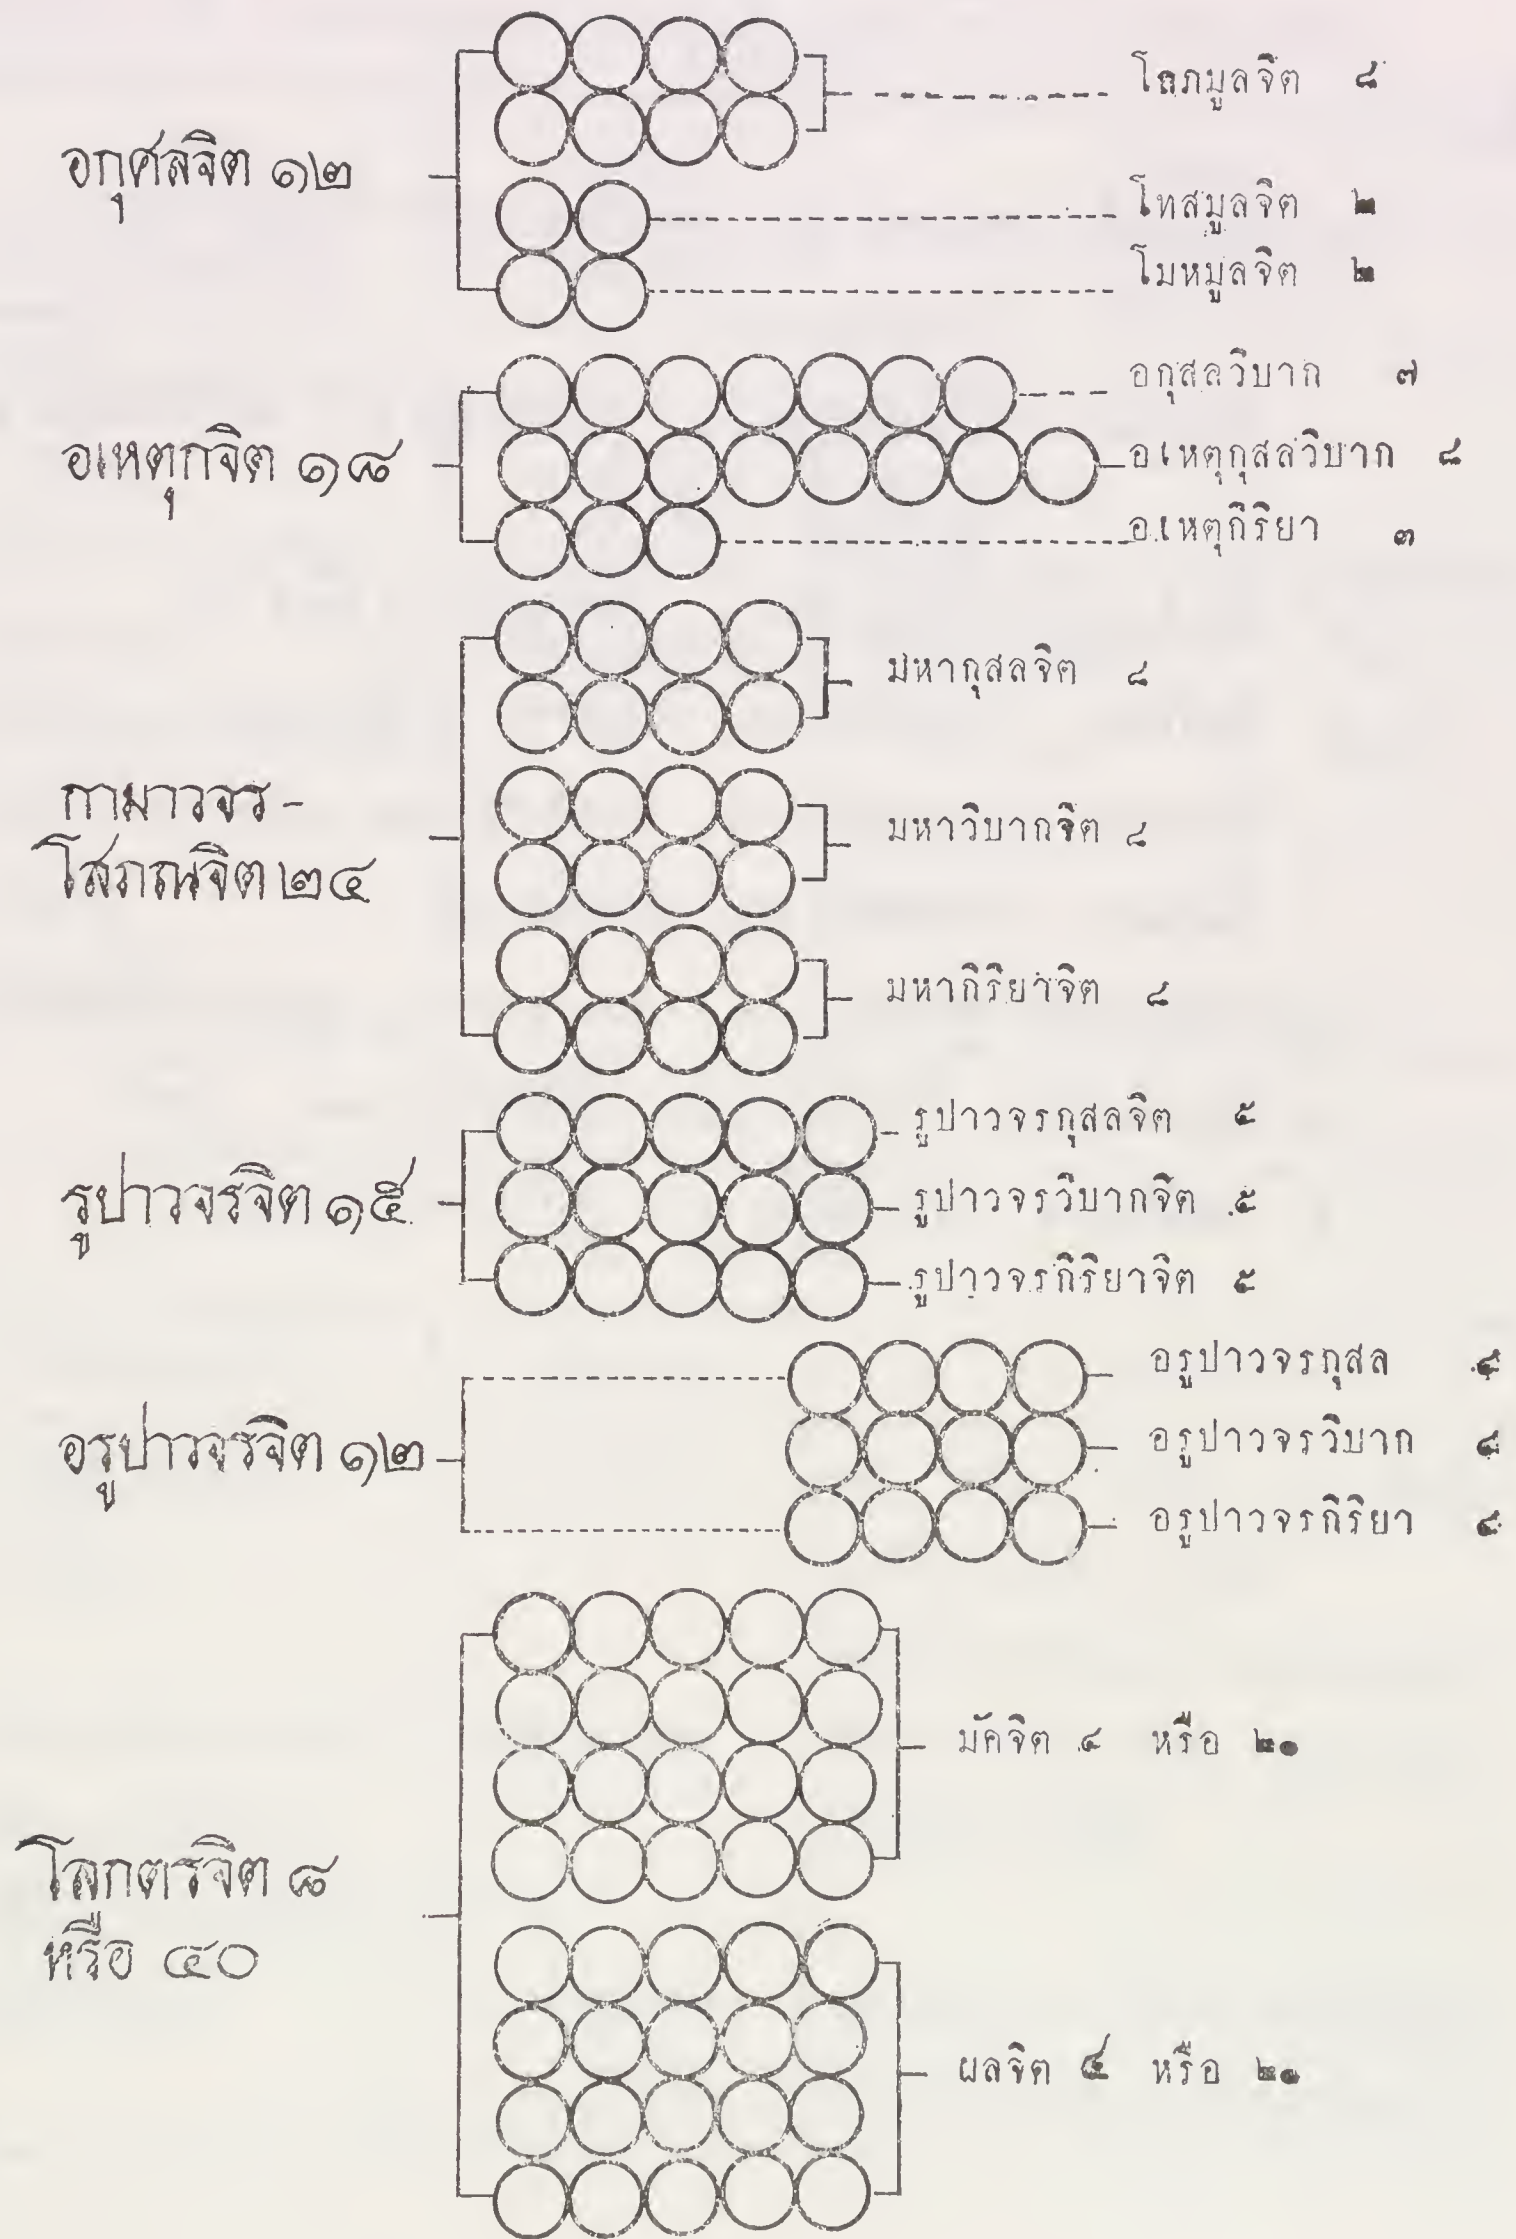 อกุศลจิต ๑๒
โลภมูลจิต ๘
โทสมูลจิต ๒
โมหมูลจิต ๒
อเหตุกจิต ๑๘
อกุสลวิบาก ๗
อเหตุกุสลวิบาก ๘
อเหตุกิริยา ๓
กามาวจร-
โสภณจิต ๒๔
มหากุสลจิต ๘
มหาวิบากจิต ๘
มหากิริยาจิต ๘
รูปาวจรจิต ๑๕
รูปาวจรกุสลจิต ๕
รูปาวจรวิบากจิต ๕
รูปาวจรกิริยาจิต ๕
อรูปาวจรจิต ๑๒
อรูปาวจรกุสล ๔
อรูปาวจรวิบาก ๔
อรูปาวจรกิริยา ๔
โลกตรจิต ๘
หรือ ๔๐
มัคจิต ๔ หรือ ๒๐
ผลจิต ๔ หรือ ๒๐